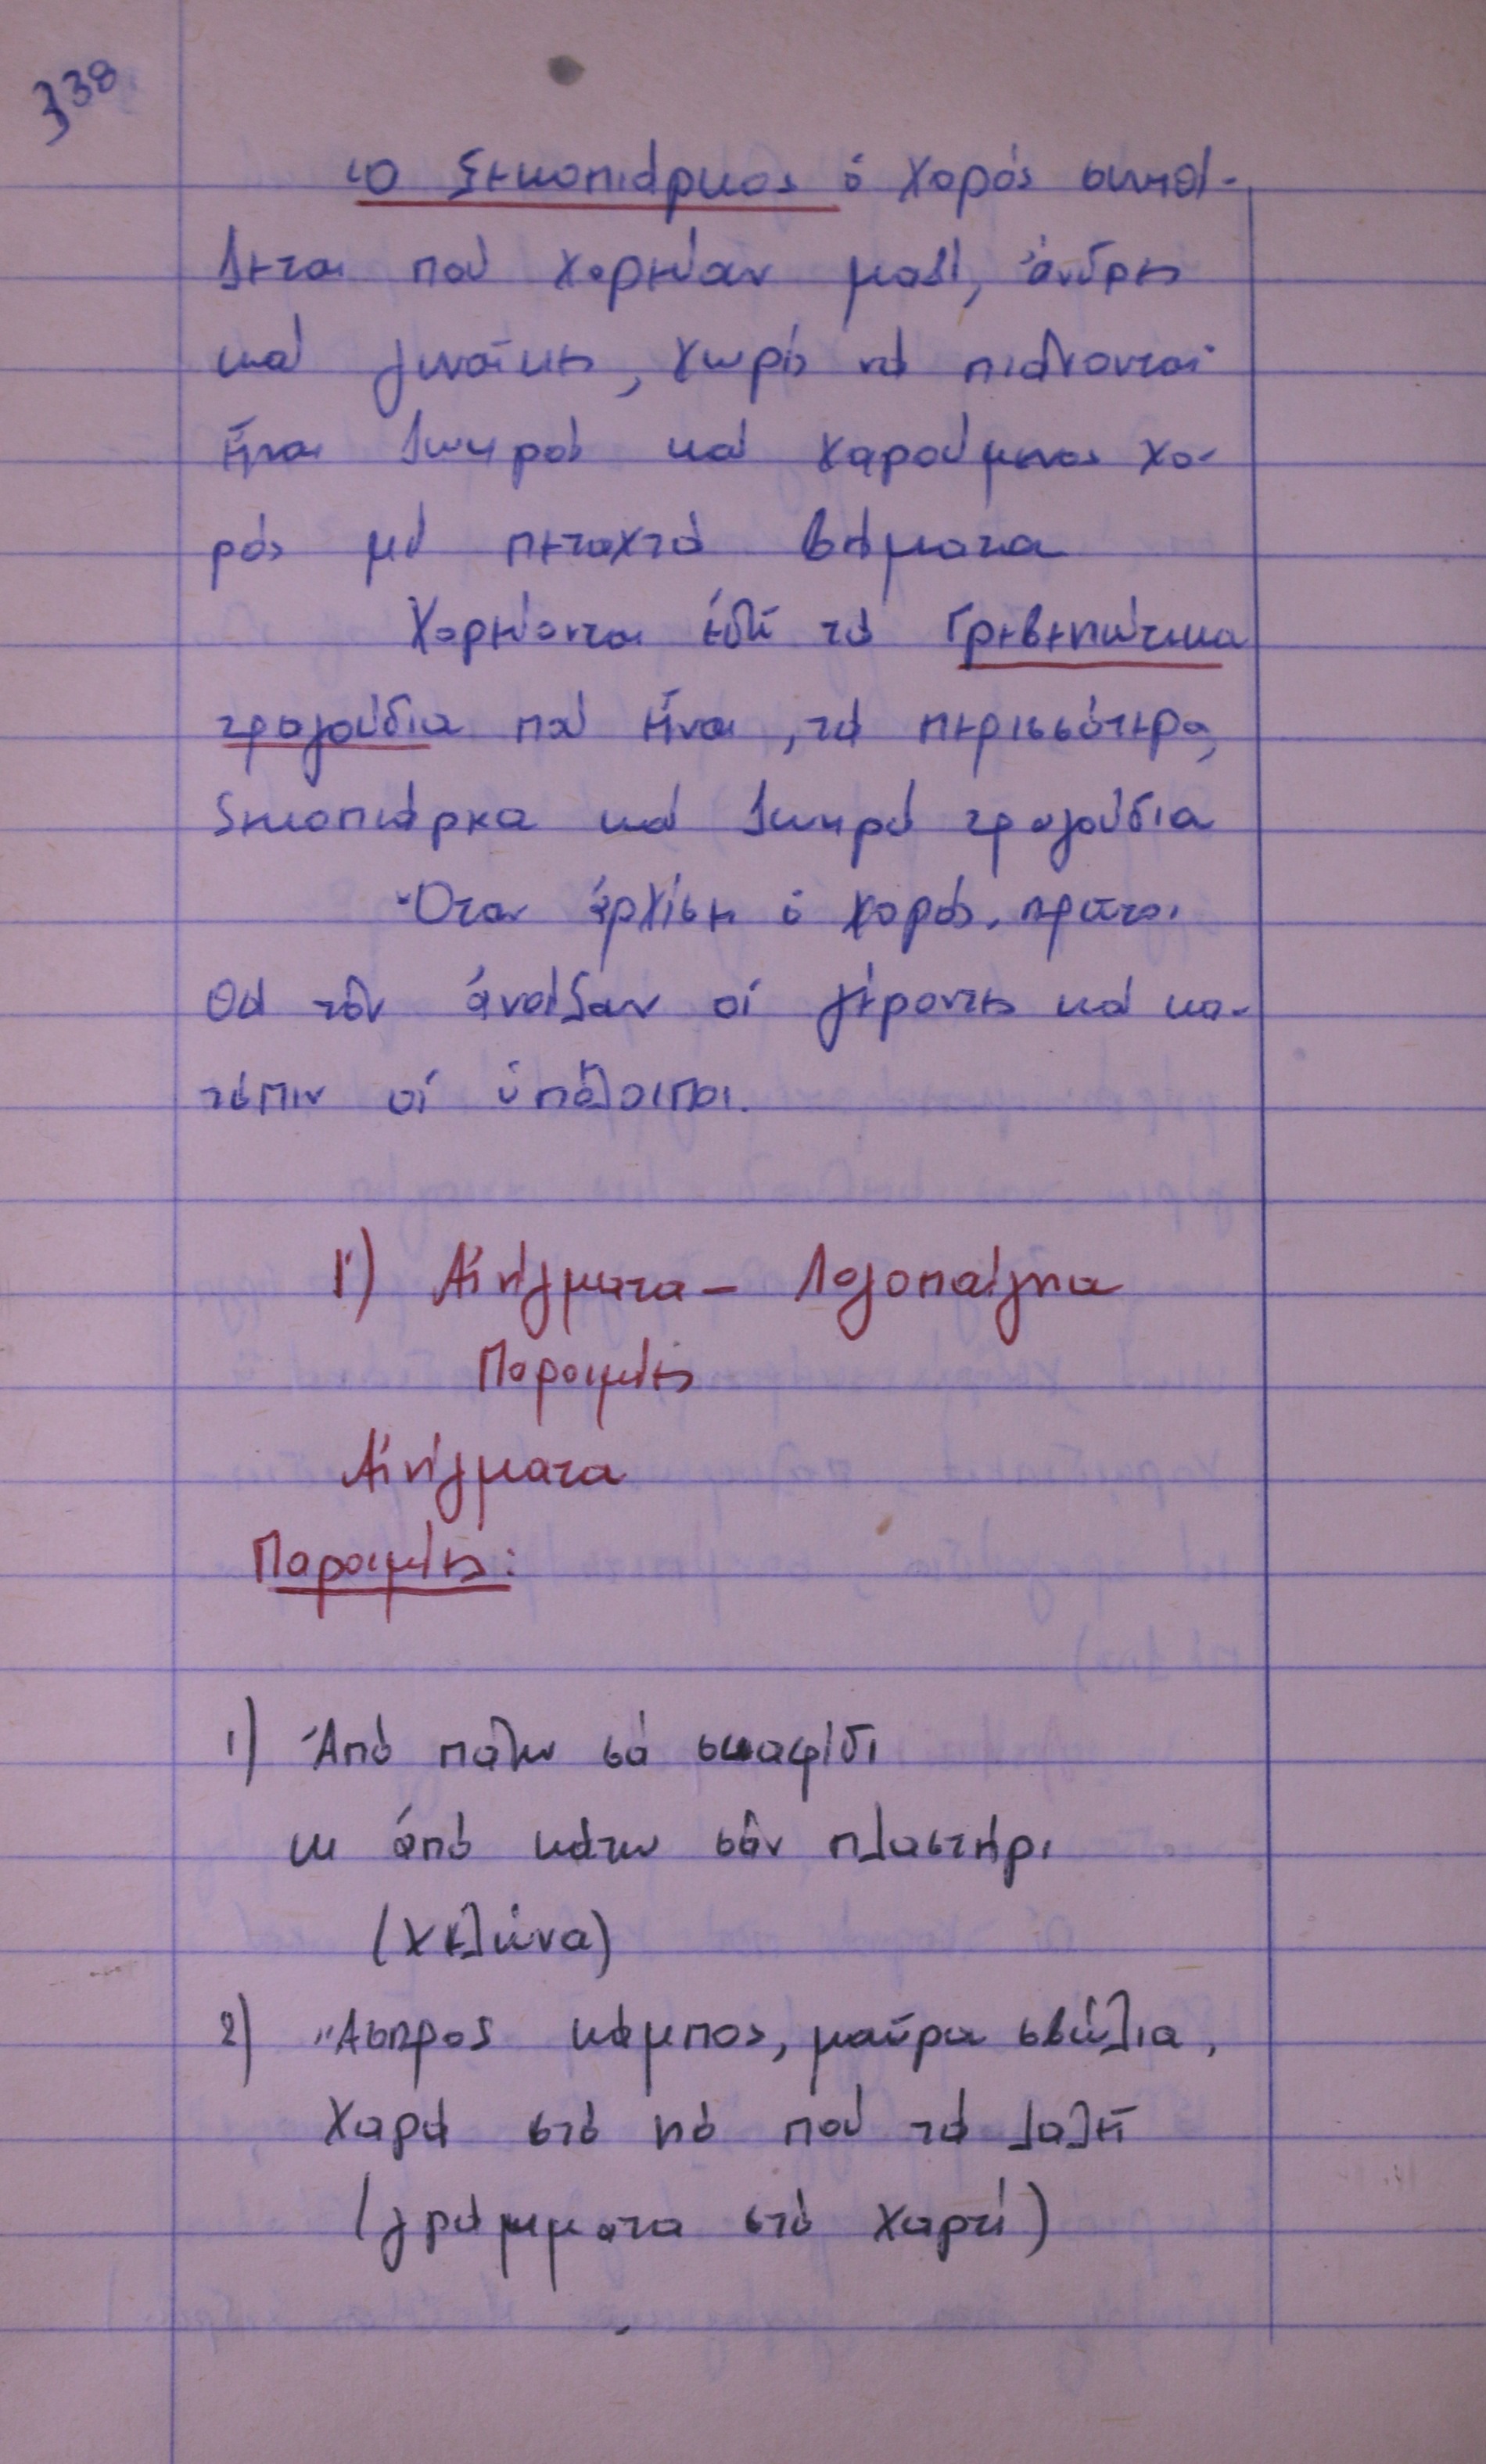 338
Ὁ Ξεκοπιάρκος ὁ χορός συνοδ-
ζεται πού χορεύαν μαζί, ἄνδρες
καί γυναῖκες, χωρίς νά πιάνονται
εἶναι ζωηρός καί χαρούμενος χο-
ρός μέ πεταχτά βήματα
Χορεύονται ἐδῶ τά Γρεβενιώτικα
τραγούδια πού εἶναι, τά περισσότερα,
ξεκοπιάρκα καί ζωηρά τραγούδια
Ὅταν ἀρχίσει ὁ χορός, πρῶτοι
θά τόν ἀνοίξουν οἱ γέροντες καί κα-
τόπιν οἱ ὑπόλοιποι.
Γ) Αἰνίγματα - Λογοπαίγνια
Παροιμίες
Αἰνίγματα
Παροιμίες:
1) Ἀπό πάνω σά σκαφίδι
κι ἀπό κάτω σάν πλαστήρι
(χελώνα)
2) Ἄσπρος κάμπος, μαῦρα σβώλια,
χαρά στό νιό πού τά λαλεῖ
(γράμματα στό χαρτί)